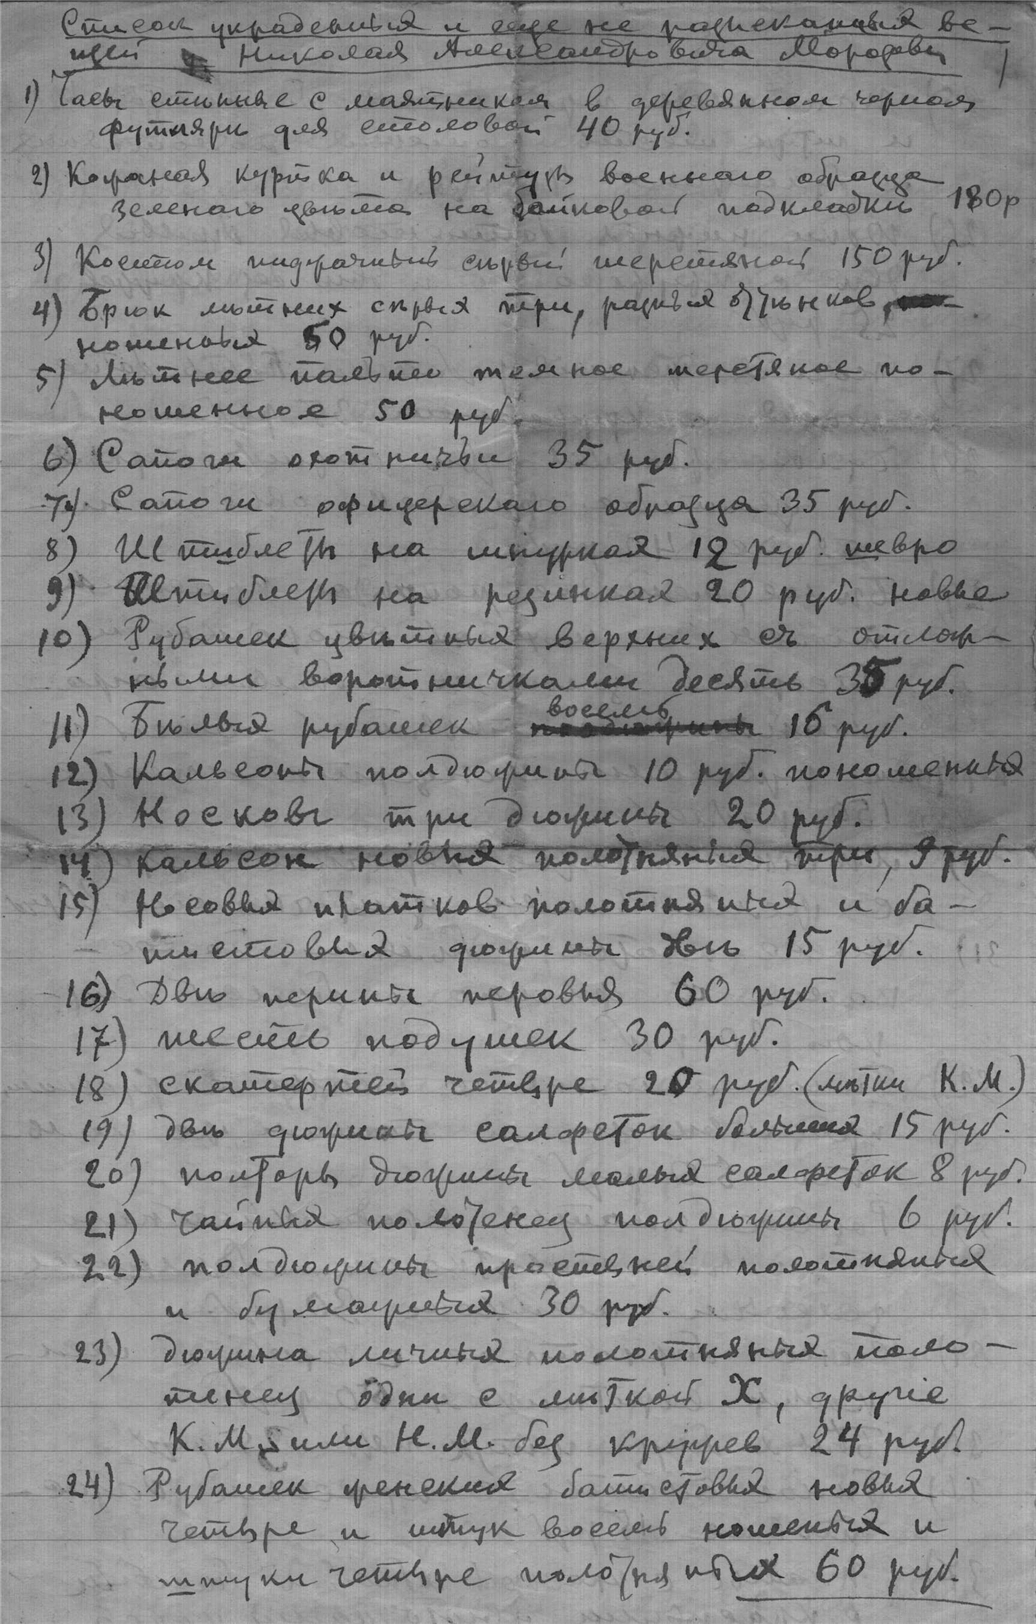 Список украденных и еще не разысканных ве-
щей Николая Александровича Морозова
1) Часы стѣнные с маятником в деревянном черном
футлярѣ для столовой 40 руб.
2) Кожаная куртка и рейтузы военнаго образца
зеленаго цвѣта на байковой подкладкѣ 180 р
3) Костюм пиджачный сѣрый шерстяной 150 руб.
4) Брюк лѣтних сѣрых три, разных оттѣнков,
ношенных 50 руб.
5) Лѣтнее пальто темное шерстяное по-
ношенное 50 руб.
6) Сапоги охотничьи 35 руб.
7) Сапоги офицерскаго образца 35 руб.
8) Штиблеты на шнурках 12 руб. шевро
9) Штиблеты на резинках 20 руб. новые
10) Рубашек цвѣтных верхних съ отлож-
ными воротничками десять 35 руб.
11) Бѣлых рубашек восемь 16 руб.
12) Кальсоны полдюжины 10 руб. поношенных
13) Носков три дюжины 20 руб.
14) Кальсон новых полотняных три, 9 руб.
15) Носовых платков полотняных и ба-
тистовых дюжины двѣ 15 руб.
16) Двѣ перины перовыя 60 руб.
17) шесть подушек 30 руб.
18) скатертей четыре 20 руб. (мѣтки К.М.)
19) двѣ дюжины салфеток больших 15 руб.
20) полторы дюжины малых салфеток 8 руб.
21) чайных полотенец полдюжины 6 руб.
22) полдюжины простыней полотняных
и бумажных 30 руб.
23) дюжина личных полотняных поло-
тенец одни с мѣткой Х, другіе
К.М. или Н.М. без кружев 24 руб.
24) Рубашек женских батистовых новых
четыре и штук восемь ношеных и
штуки четыре полотняных 60 руб.